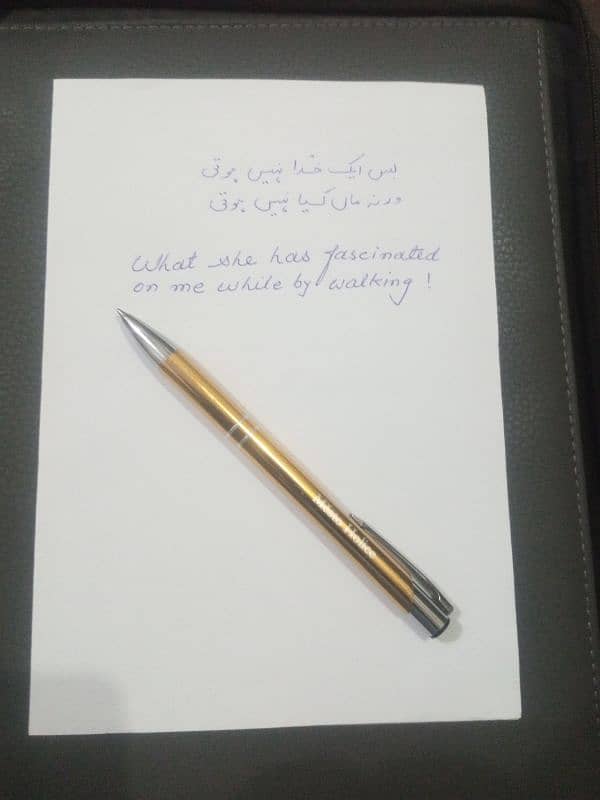 بس ایک خدا نہیں ہوتی
ورنہ ماں کیا نہیں ہوتی
What she has fascinated
on me while by walking !
Metro Police